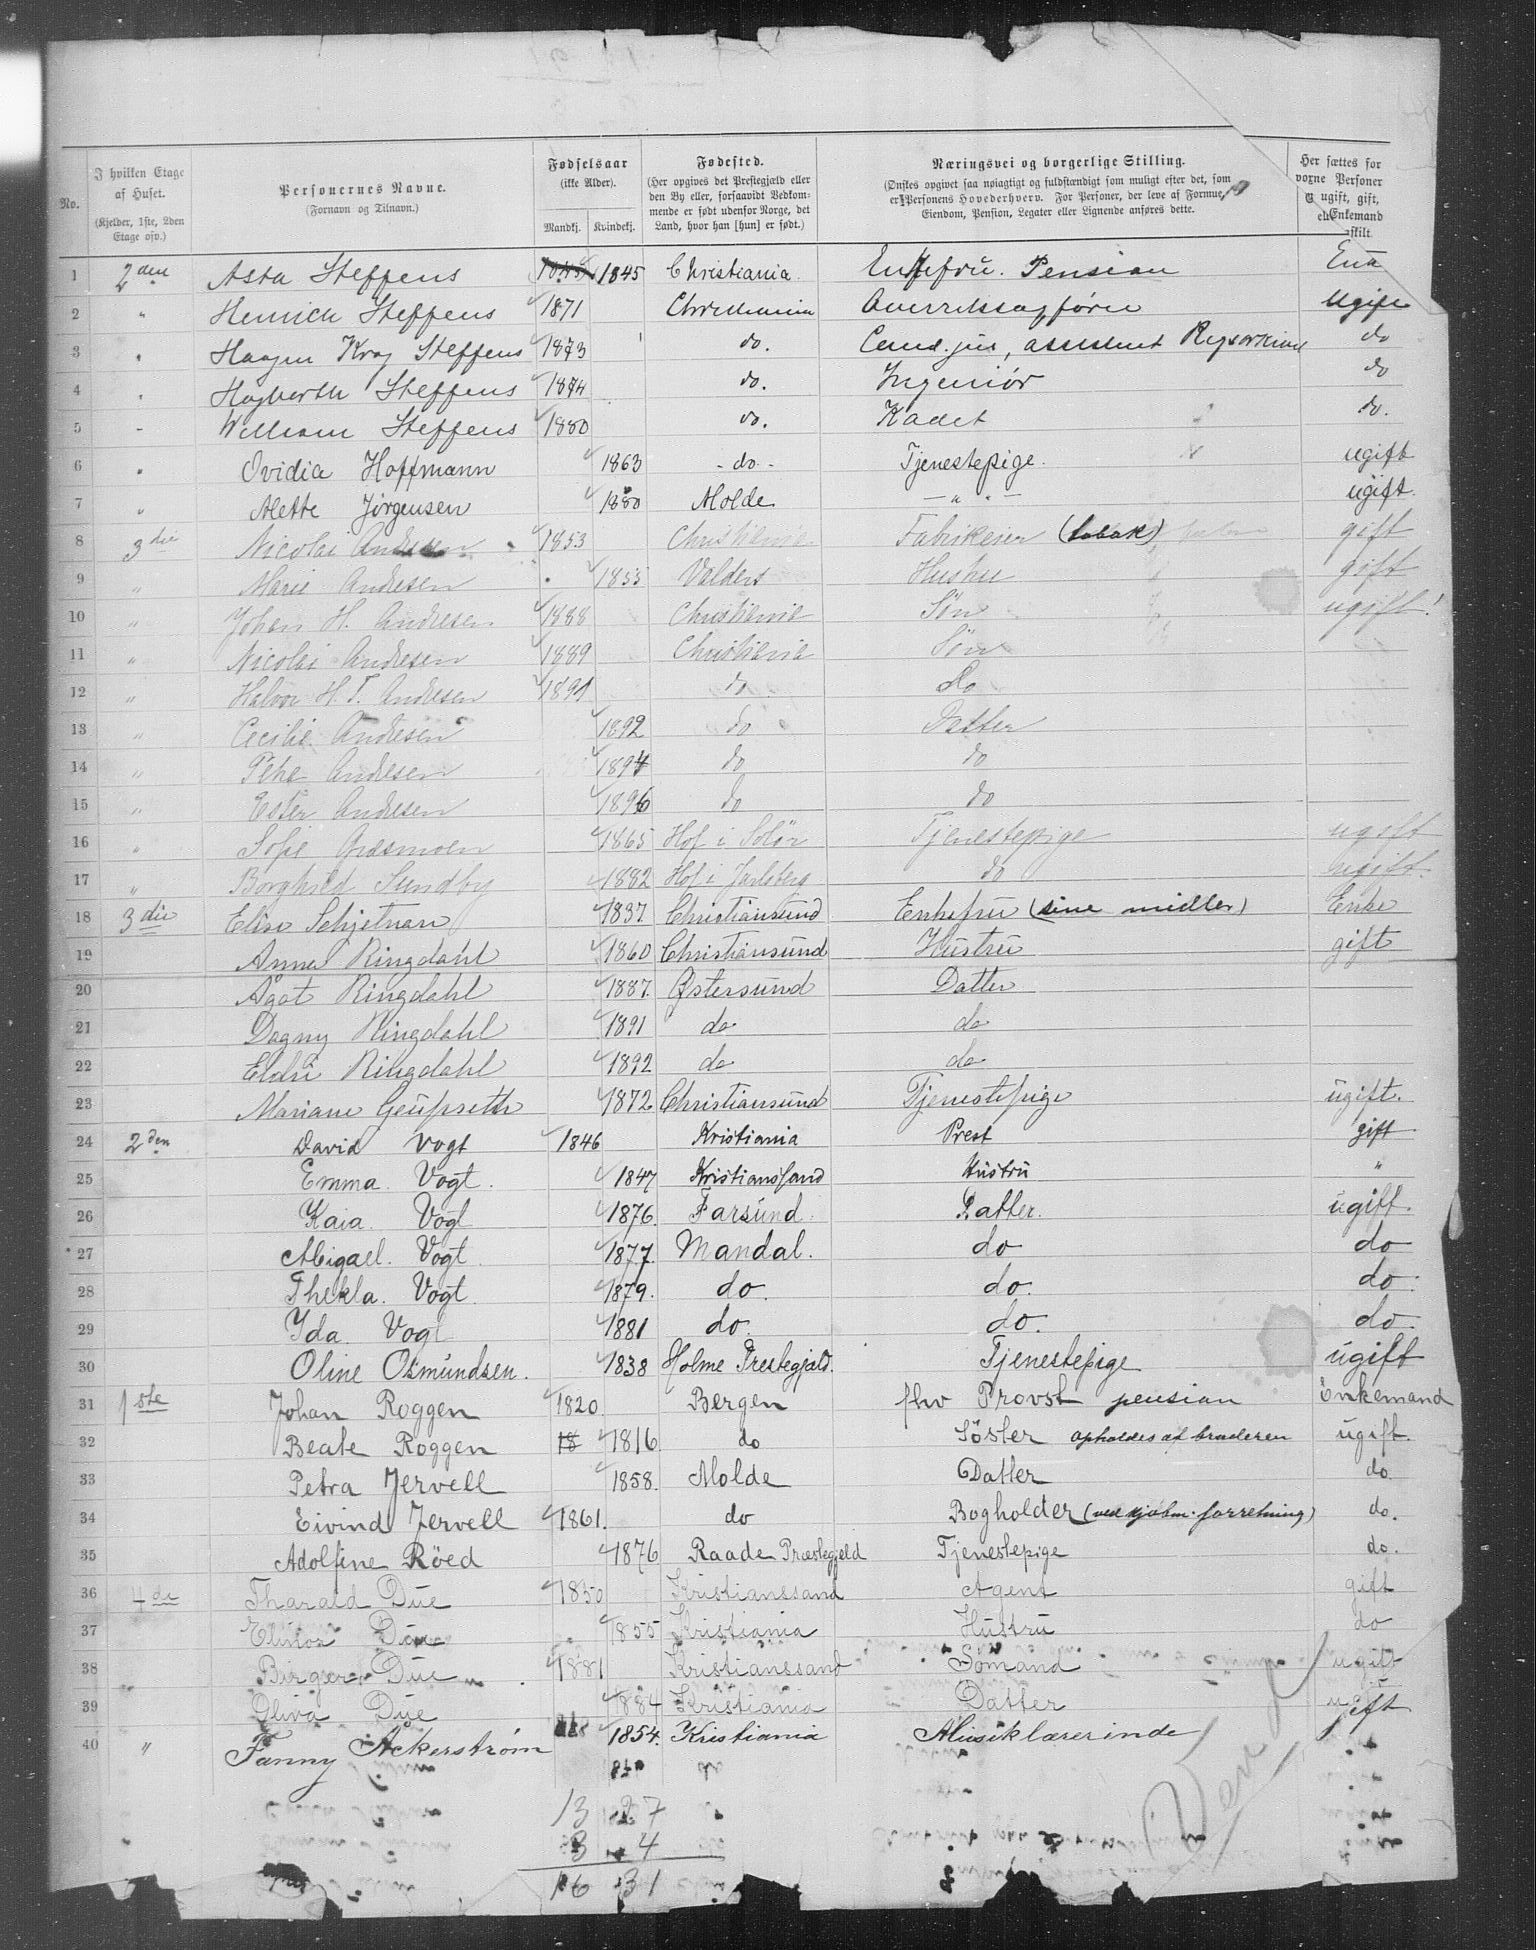 No. I hvilken Etage af Huset. (Kjelder, 1ste, 2den Etage osv.) Personernes Navne. (Fornavn og Tilnavn.) Fødselsaar (ikke Alder). Mandkj. Kvindekj. Fødested. (Her opgives det Prestegjæld eller den By eller, forsaavidt Vedkommende er født udenfor Norge, det Land, hvor han [hun] er født.) Næringsvei og borgerlige Stilling. (Ønskes opgivet saa nøiagtigt og fuldstændigt som muligt efter det, som er Personens Hovederhverv. For Personer, der leve af Formue, Eiendom, Pension, Legater eller Lignende anføres dette. Her sættes for voxne Personer ugift, gift, Enkemand skilt.
1 2den Asta Steffens 1845 1845 Christiania Enkefru. Pension
2 " Henrich Steffens 1871 Christiania Overretssagfører Ugift
3 " Haagen Krag Steffens 1873 do. Cand. jur, assistent Rigsarkivet do
4 " Hagbarth Steffens 1874 do. Ingeniör do
5 " William Steffens 1880 do. Kadet do.
6 " Ovidia Hoffmann 1863 - do - Tjenestepige. ugift
7 " Alette Jörgensen 1880 Molde — " — ugift.
8 3die Nicolai Andresen 1853 Christiania Fabrikeier (tobak) gift
9 " Marie Andresen 1855 Valders Hustru gift
10 " Johan H. Andresen 1888 Christiania Sön ugift!
11 " Nicolai Andresen 1889 Christiania Sön
12 " Halvor H. T. Andresen 1891 do Do
13 " Cecilie Andresen 1892 do Datter
14 " Andresen 1894 do do
15 " Ester Andresen 1896 do do
16 " Sofie Græsmoen 1865 Hof i Solör Tjenestepige ugift
17 " Borghild Sundby 1882 Hof i Jarlsberg do ugift.
18 3die Elise Schjetnan 1837 Christiansund Enkefru (sine midler) Enke
19 Anna Ringdahl 1860 Christiansund Hustru gift
20 Ågot Ringdahl 1887 Østersund Datter
21 Dagny Ringdahl 1891 do do
22 Eldri Ringdahl 1892 do do
23 Mariane 1872 Christiansund Tjenestepige ugift.
24 2den David Vogt 1846 Kristiania Prest gift
25 Emma Vogt. 1847 Kristianssand Hustru "
26 Kaia. Vogt 1876 Farsund. Datter. ugift.
27 Abigael. Vogt 1877. Mandal. do do
28 Thekla. Vogt 1879. do. do. do.
29 Ida. Vogt 1881 do. do. do.
30 Oline Osmundsen. 1838 Holme Prestegjæld. Tjenestepige ugift
31 1ste Johan Roggen 1820 Bergen fhv Provst pension Enkemand
32 Beate Roggen 18 1816 do Söster opholdes af broderen ugift.
33 Petra Jervell 1858. Molde Datter do
34 Eivind Jervell 1861. do Bogholder (ved kjøbm. forretning) do.
35 Adolfine Röed 1876 Raade Præstegjeld Tjenestepige do.
36 4de Tharald Due 1850 Kristianssand Agent gift
37 Elinor Due 1855 Kristiania Hustru do
38 Birger Due 1881 Kristianssand Sömand ugift
39 Oliva Due 1884 Kristiania Datter ugift
40 " Fanny Ackerström 1854. Kristiania Musiklærerinde
13 27
3 4
16 31
Vend